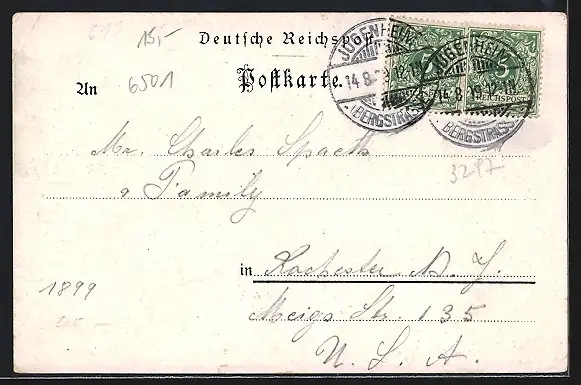 15,-
Deutsche Reichspost
Postkarte.
6501
An
JUGENHEIM
14 8
(BERGSTRASSE
JUGENHEIM
14.8.
(BERGSTRASSE
5
REICHSPOST
Mr. Charles Spaeth
& Family
3217
in Rochester N. Y.
1899
Meigs Str. 135
U. S. A.